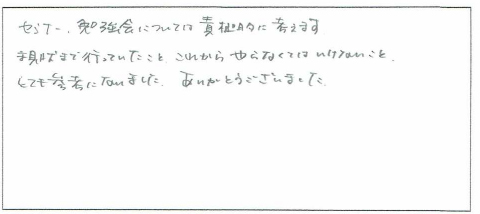 セミナー、勉強会については責極的に考えます
現段まで行っていたこと、これから やらなくてはいけないこと、
とても参考になりました。ありがとうございました。